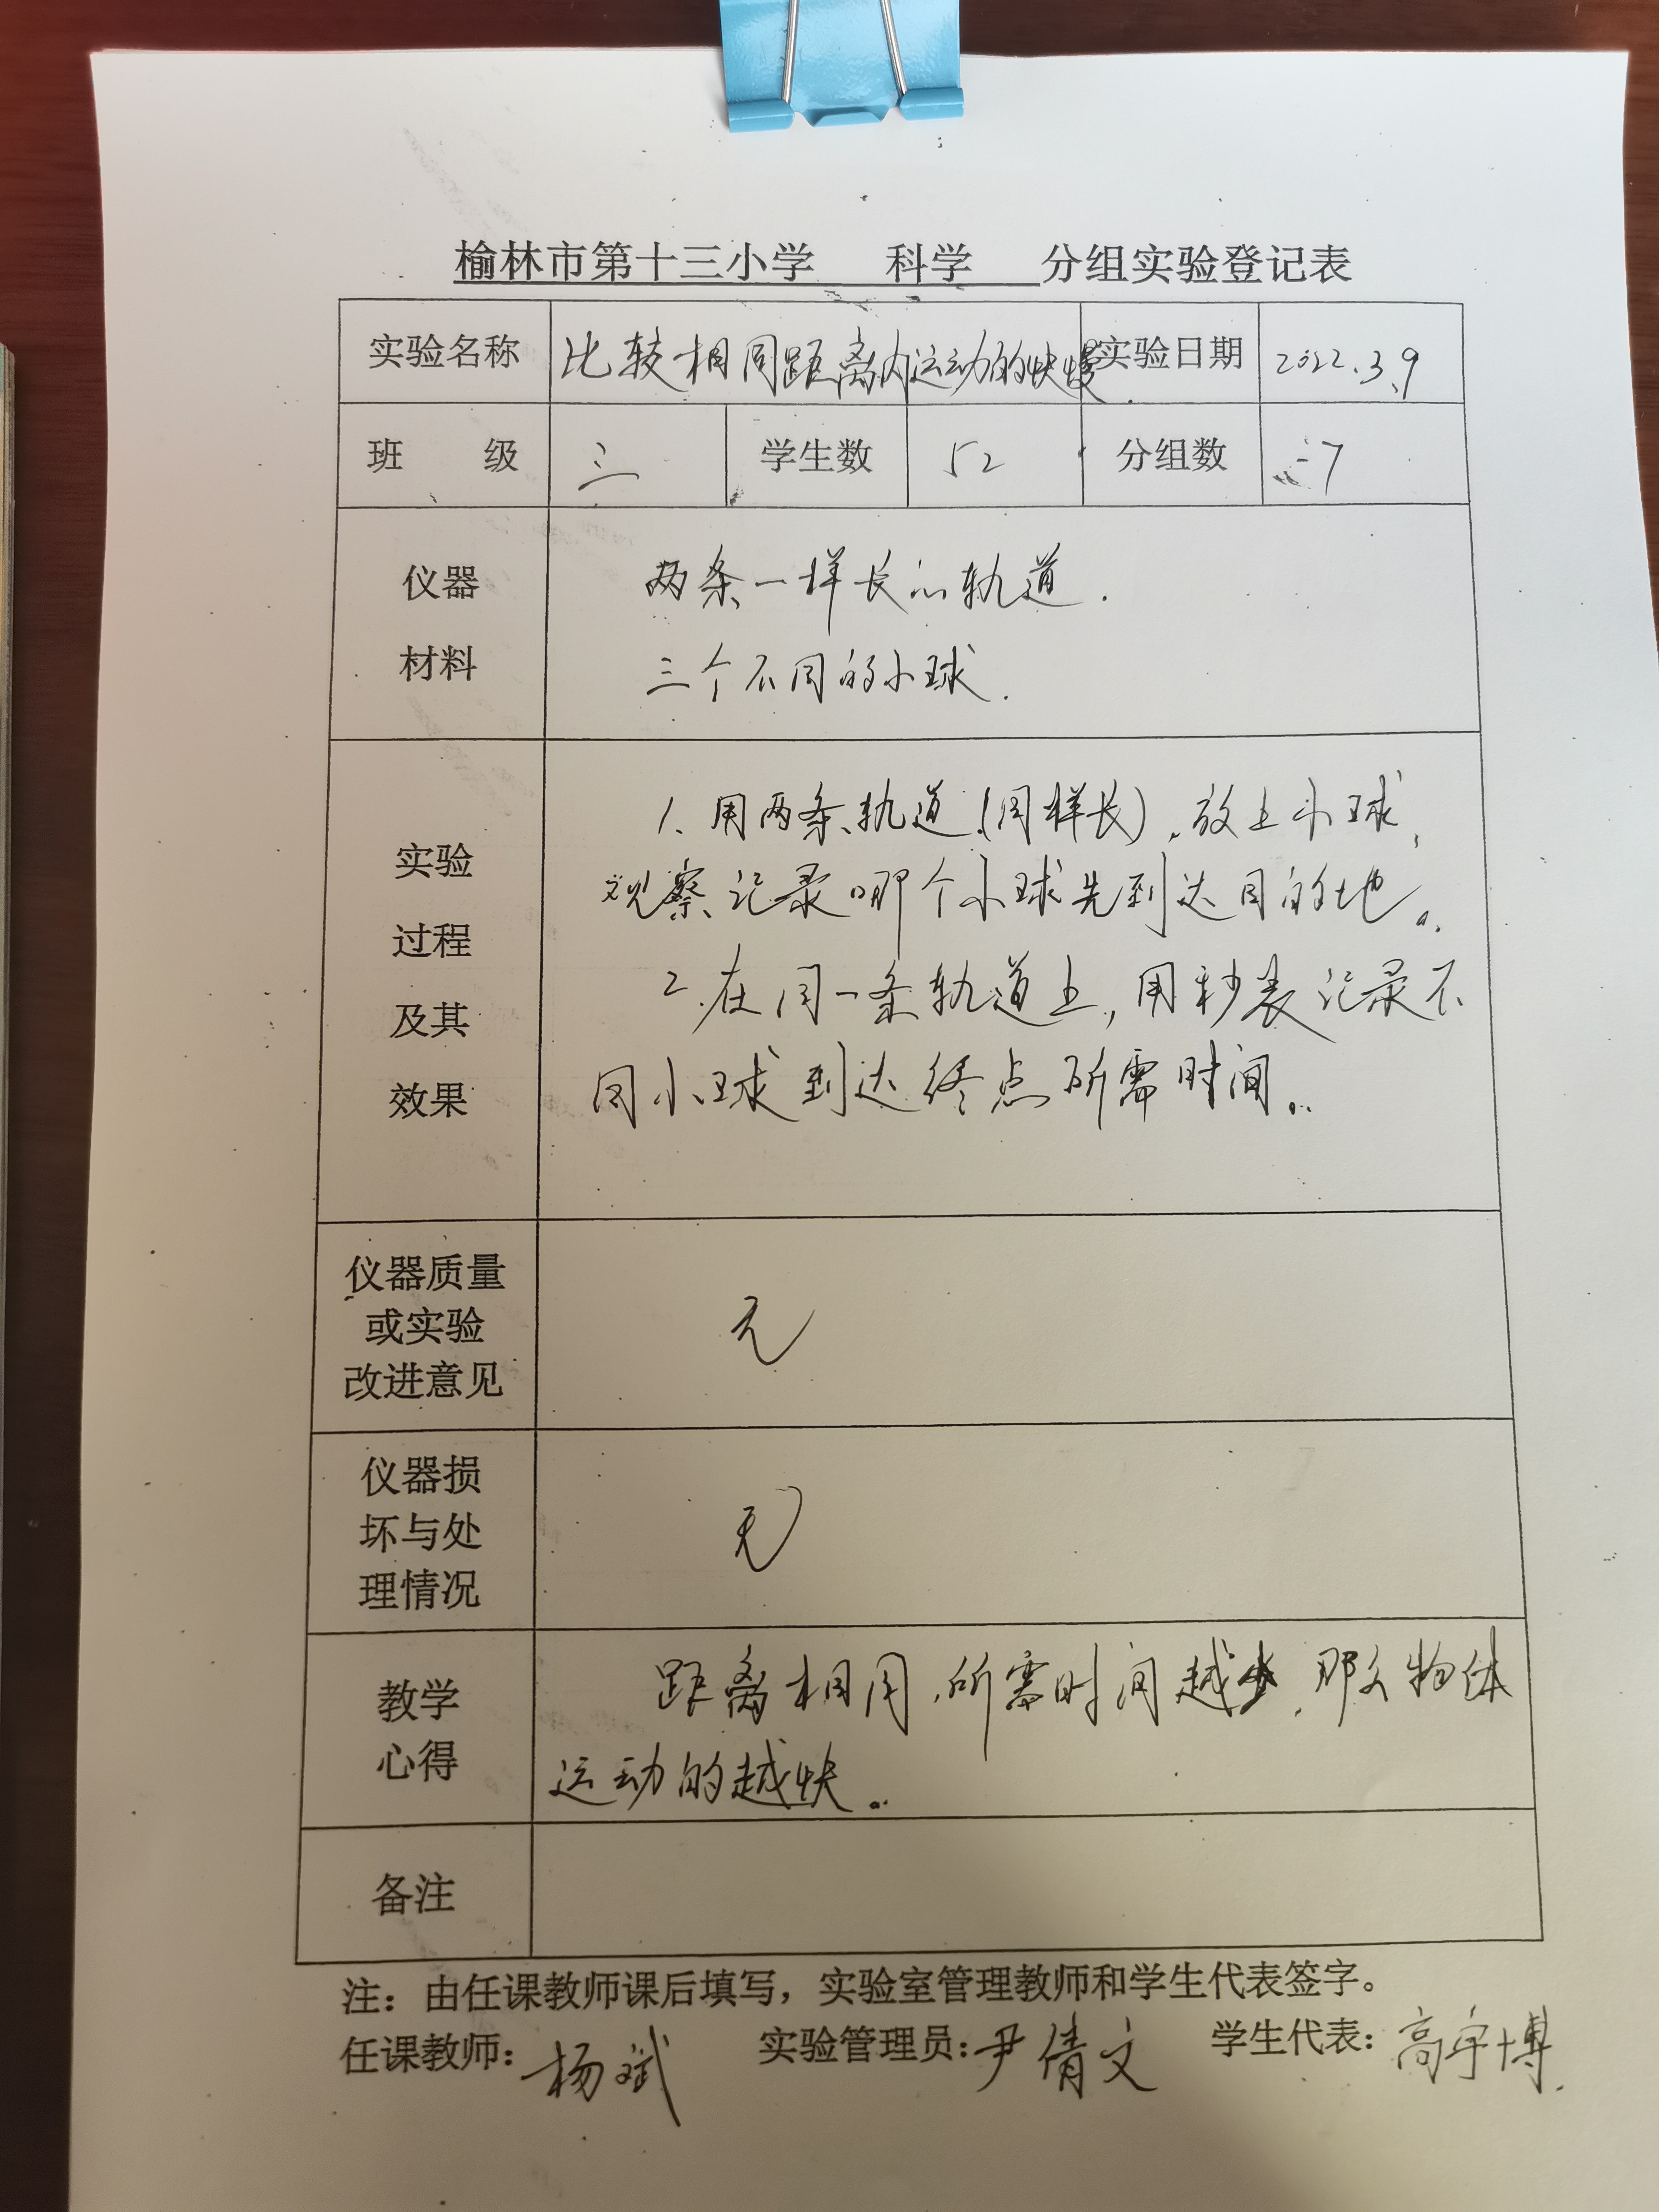 榆林市第十三小学 科学 分组实验登记表
实验名称 比较相同距离内运动的快慢 实验日期 2022.3.9
班 级 三 学生数 52 分组数 7
仪器
材料
两条一样长的轨道.
三个不同的小球.
实验
过程
及其
效果
1、用两条轨道(同样长),放上小球,
观察记录哪个小球先到达目的地。
2.在同一条轨道上,用秒表记录不
同小球到达终点所需时间。
仪器质量
或实验
改进意见
无
仪器损
坏与处
理情况
无
教学
心得
距离相同,所需时间越少,那么物体
运动的越快。
备注
注:由任课教师课后填写,实验室管理教师和学生代表签字。
任课教师:杨斌 实验管理员:尹倩文 学生代表:高宇博